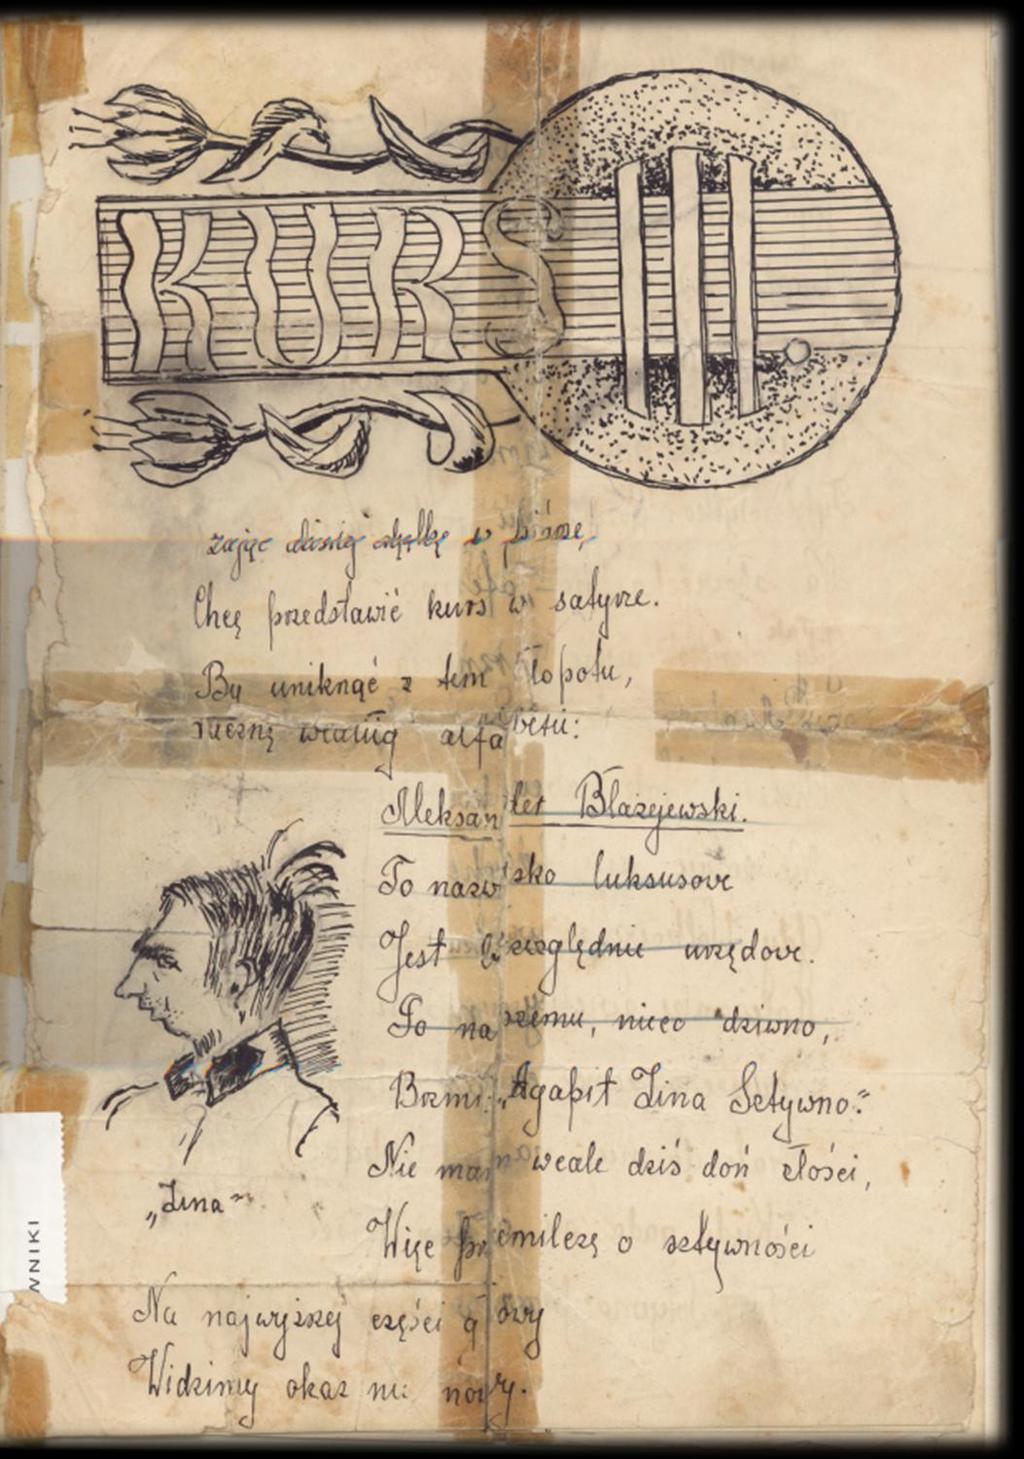 KURS III
zając dzisiaj
Chcę przedstawić kurs w satyrze.
By uniknąć z tem kłopotu,
według alfabetu:
Aleksander Błażejewski.
To nazwisko luksusowe
Jest bezwzględnie urzędowe.
Po naszemu, nieco dziwno,
Brzmi: „Agapit Lina Sztywno."
Nie mam wcale dziś doń złości,
Więc przemilczę o sztywności
„Lina"
Na najwyższej części głowy
Widzimy okaz nie nowy.
WNIKI